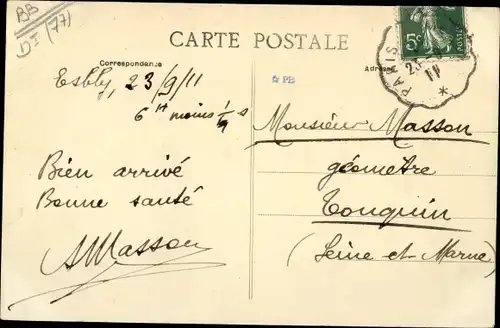 BB
DI (77)
CARTE POSTALE
Correspondance
Esbly, 23/9/11
6 ht moins 1/4
Bien arrivé
Bonne santé
AMasson
5c
POSTES
PARIS
23
11
*
PB
Monsieur Masson
géomètre
Touquin
(Seine et Marne)